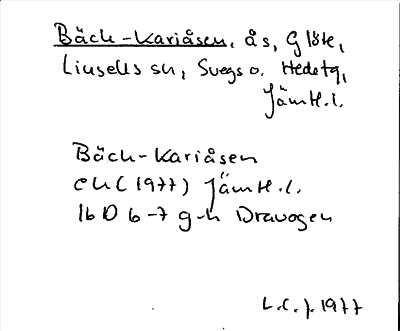 Bäck-Kariåsen, ås, Glöte,
Linsells sn, Svegs o. Hedetg,
Jämtl.l.
Bäck-Kariåsen
ek (1977) Jämtl.l.
16D 6-7 g-h Dravagen
L.C.J. 1977